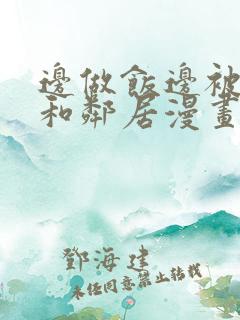 邊做飯邊被
和鄰居漫畫
鄧海建
未經同意禁止轉載